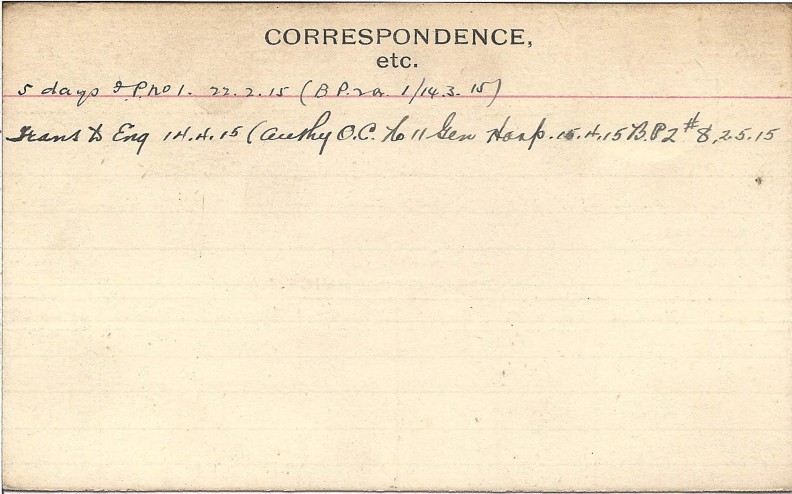 CORRESPONDENCE,
etc.
5 days F.P. no 1. 22.2.15 (B P.2a. 1/14.3.15)
Trans to Eng 14.4.15 (Authy O.C. No 11 Gen Hosp. 15.4.15 B.P2 #8, 2.5.15